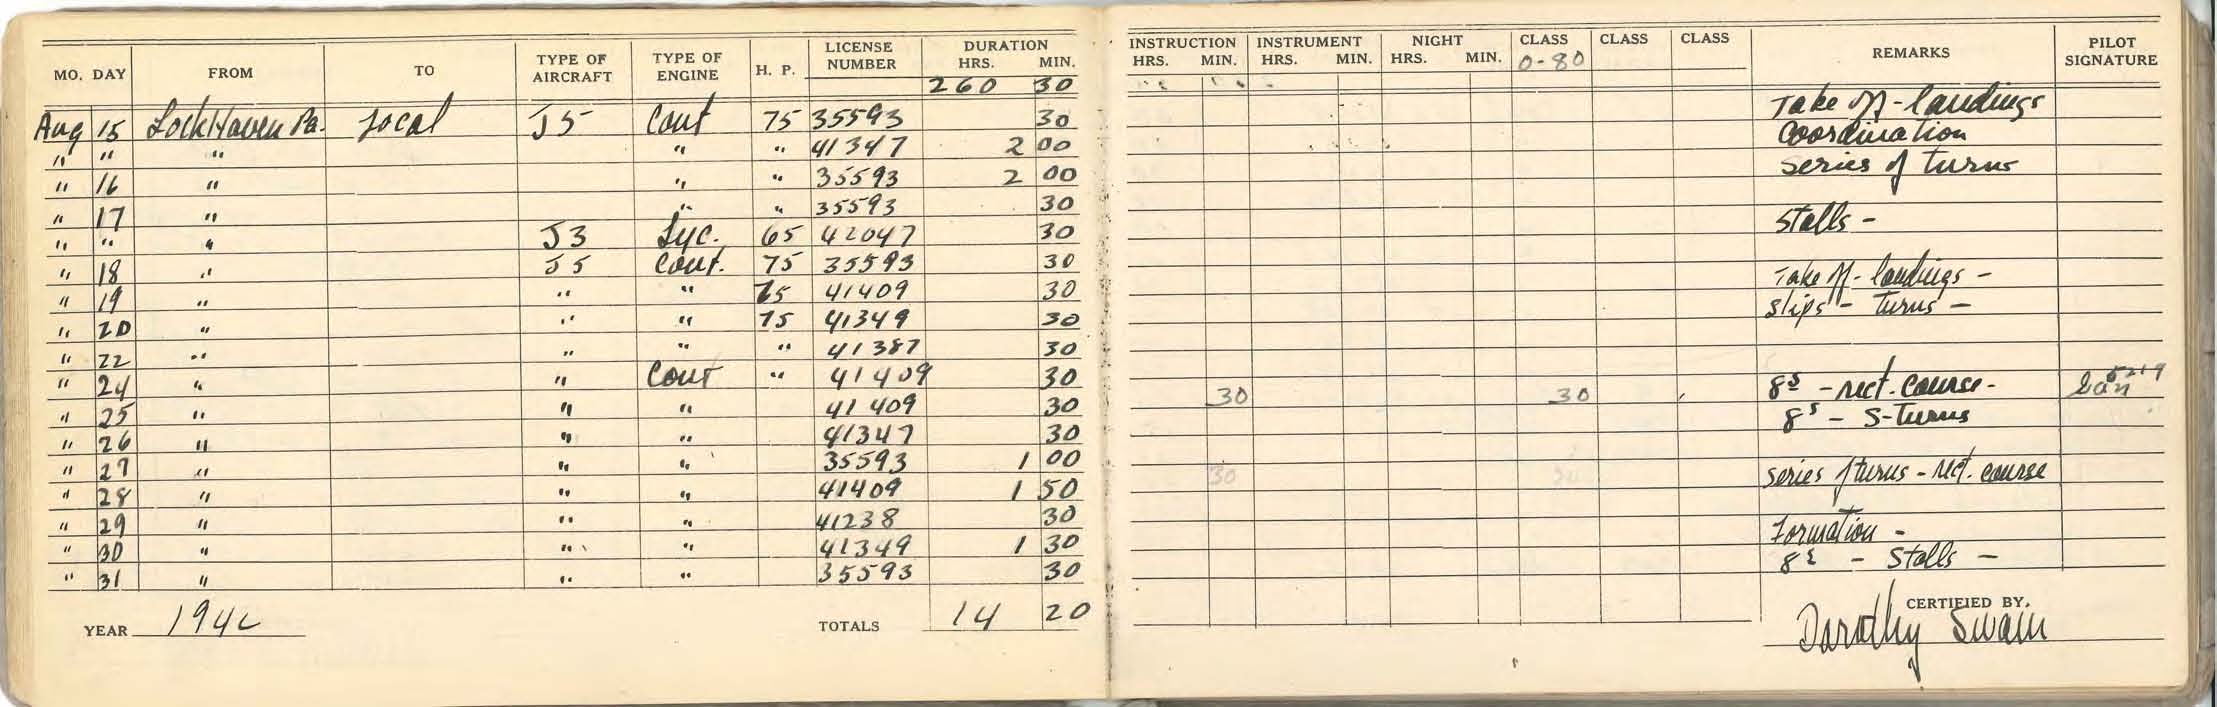 MO. DAY FROM TO TYPE OF AIRCRAFT TYPE OF ENGINE H. P. LICENSE NUMBER DURATION HRS. MIN. INSTRUCTION HRS. MIN. INSTRUMENT HRS. MIN. NIGHT HRS. MIN. CLASS 0-80 CLASS CLASS REMARKS PILOT SIGNATURE
260 30
Aug 15 Lock Haven Pa. Local J5 Cont 75 35593 30 Take off - landings
" " " " " 41347 2 00 Coordination
" 16 " " " 35593 2 00 Series of turns
" 17 " " " 35593 30
" " " J3 Lyc. 65 42047 30 Stalls -
" 18 " J5 Cont. 75 35593 30
" 19 " " " 75 41409 30 Take off - landings -
" 20 " " " 75 41349 30 Slips - turns -
" 22 " " " " 41387 30
" 24 " " Cont " 41409 30 30 30 8s - rect. course -
" 25 " " " 41409 30 8s - S-turns
" 26 " " " 41347 30
" 27 " " " 35593 1 00 30 Series of turns - rect. course
" 28 " " " 41409 1 50
" 29 " " " 41238 30 Formation -
" 30 " " " 41349 1 30 8s - Stalls -
" 31 " " " 35593 30
YEAR 1942 TOTALS 14 20 CERTIFIED BY.
Dorothy Swain